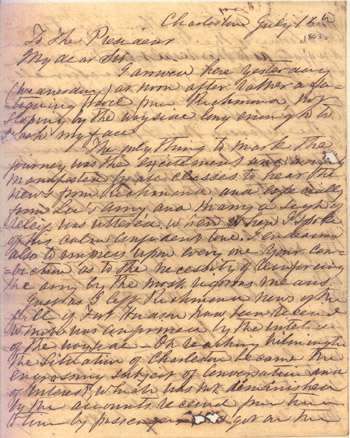 Charleston July 16th
1863
To The President
My dear Sir
I arrived here yesterday
(Wednesday) at noon after rather a fa-
tiguing travel from Richmond, not
stopping by the wayside long enough to
wash my face
The only thing to mark the
journey was the excitement and anxiety
manifested by all classes to hear the
news from Richmond and especially
from Lee's army and many a sigh of
relief was uttered when I spoke
of his calm confident tone. I endeavored
also to impress upon every one your con-
viction as to the necessity of reinforcing
the army by the most rigorous means
Just as I left Richmond news of the
fall of Port Hudson had been received
which was confirmed by the
of the wayside - On reaching Wilmington
the situation of Charleston became the
engrossing subject of conversation and
of interest, which was not diminished
by the accounts received from time
to time by passengers who got on the